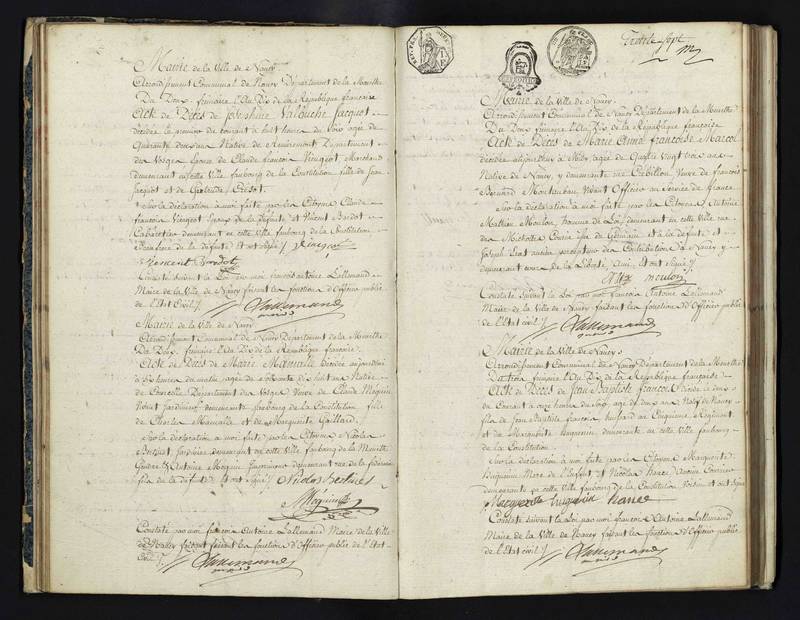 Mairie de la Ville de Nancy
Arrondissement Communal de Nancy Département de la Meurthe
Du Deux frimaire l'An Dix de la République française
Acte de Décès de Josephine Jacquot
décédée le premier du courant à huit heures du soir agée de
Quarante deux ans Native de Remiremont Département
des Vosges Epouse de Claude françois Vinçent Marchand
demeurant en cette Ville faubourg de la Constitution fille de Jean
Jacquot et de
Sur la déclaration à moi faite par les Citoyens Claude
françois Epoux de la Defunte et Vincent Bardot
Cabaretier demeurant en cette Ville faubourg de la Constitution
de la defunte et ont signé
Vincent Bardot
Constaté suivant la Loi par moi françois Antoine Lallemand
Maire de la Ville de Nancy faisant les fonctions d'Officier public
de l'Etat Civil
Lallemand
Mairie de la Ville de Nancy
Arrondissement Communal de Nancy Département de la Meurthe
Du Deux frimaire l'An Dix de la République française
Acte de Décès de Marie Décédée aujourd'hui
à heures du matin agée de Soixante dix huit ans Native
de Département des Vosges Veuve de Claude
Vivant Jardinier demeurante faubourg de la Constitution fille
de Charles et de Marguerite Gaillard
Sur la déclaration à moi faite par les Citoyens Nicolas
Jardinier demeurant en cette Ville faubourg de la Meurthe
Gendre & Antoine demeurant rue de la
fils de la defunte Et ont signé Nicolas
Constaté par moi françois Antoine Lallemand Maire de la Ville
de Nancy faisant les fonctions d'Officier public de l'Etat
Civil
Lallemand
Trente Sept
Mairie de la Ville de Nancy
Arrondissement Communal de Nancy Département de la Meurthe
Du Deux frimaire l'An Dix de la République française
Acte de Décès de Marie Anne françoise Marcol
décédée aujourd'hui à Midi agée de Quatre Vingt trois ans
Native de Nancy, y demeurante rue Crébillon Veuve de françois
Bernard Montauban Vivant Officier au Service de france
Sur la déclaration à moi faite par les Citoyens Antoine
Mathieu Moulon, homme de Loi demeurant en cette Ville rue
des Michottes Cousin de la defunte et
Joseph ancien percepteur des Contributions à Nancy y
demeurant cour de la Liberté Ami, Et ont Signé
Moulon
Constaté suivant la Loi par moi françois Antoine Lallemand
Maire de la Ville de Nancy faisant les fonctions d'Officier public
de l'Etat civil
Lallemand
Mairie de la Ville de Nancy
Arrondissement Communal de Nancy Département de la Meurthe
Du trois frimaire l'An Dix de la République française
Acte de Décès de Jean Baptiste francois Décédé le deux
du Courant à onze heures du soir agé de deux ans Natif de Nancy
fils de Jean Baptiste françois, hussard au Cinquieme Régiment
et de Marguerite huguenin demeurante en cette Ville faubourg
de la Constitution
Sur la déclaration à moi faite par les Citoyens Marguerite
huguenin Mere de l'Enfant et Nicolas
demeurants en cette Ville faubourg de la Constitution Voisin et ont Signé
Marguerite huguenin
Constaté suivant la Loi par moi francois Antoine Lallemand
Maire de la Ville de Nancy faisant les fonctions d'Officier public
de l'Etat civil
Lallemand